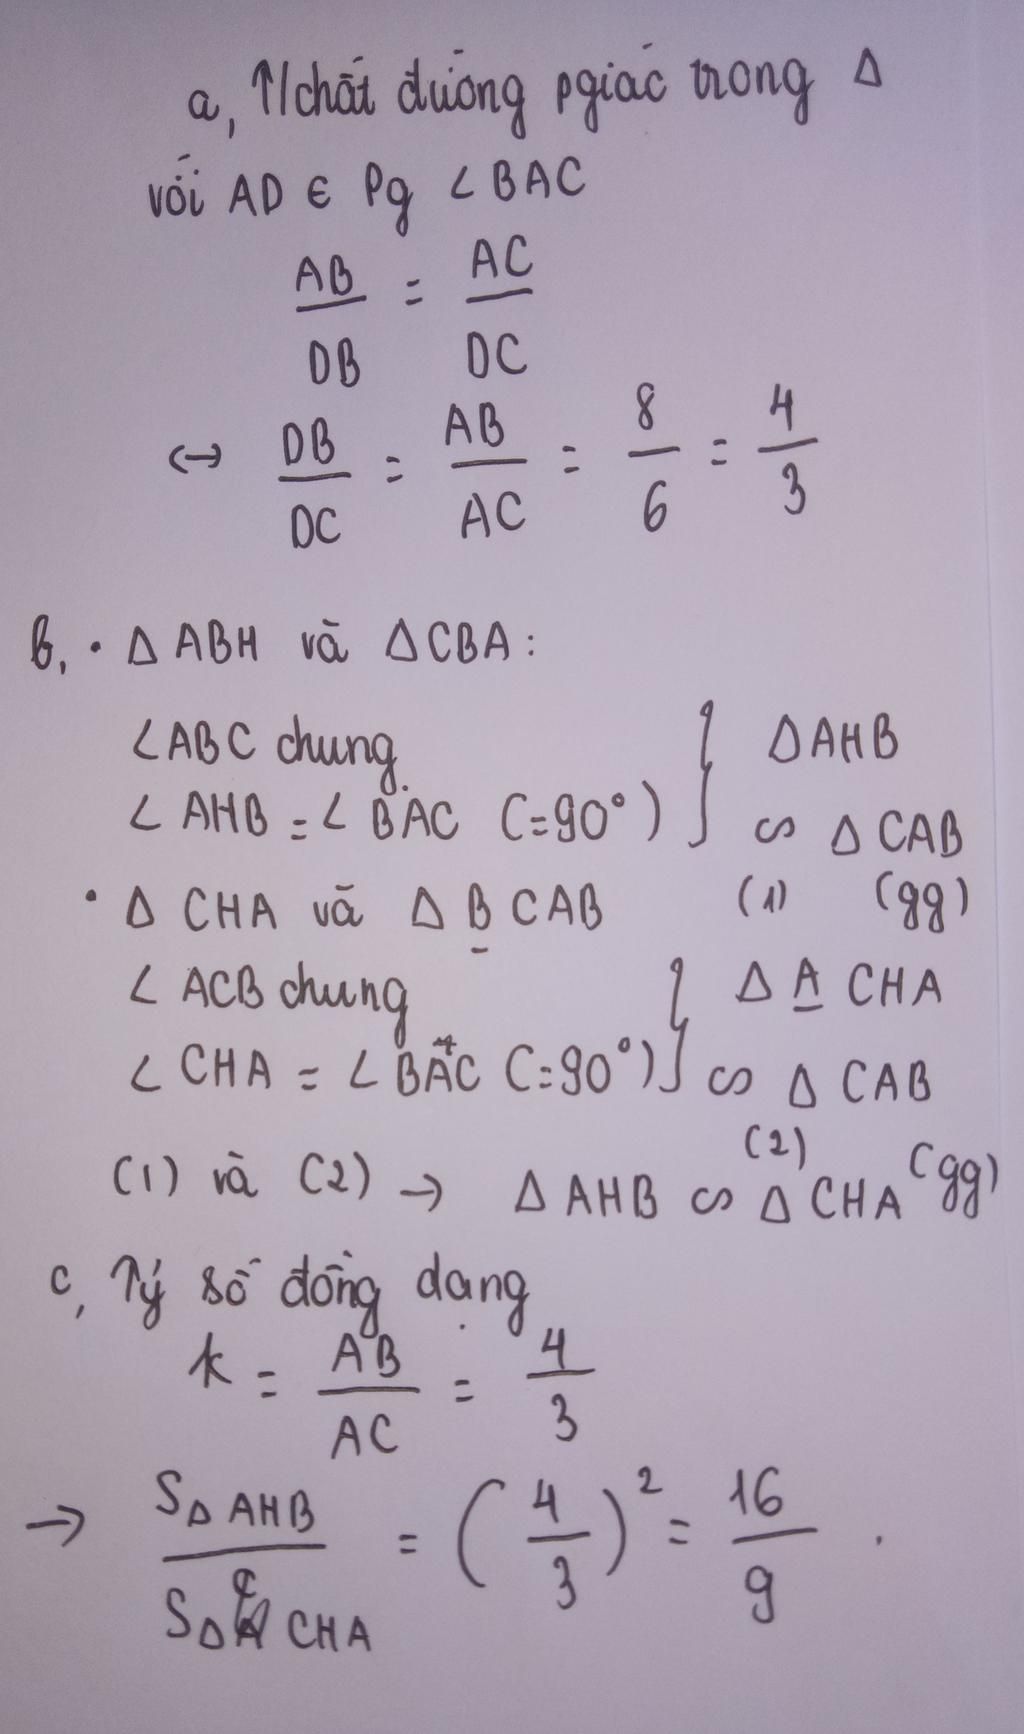 a, T/chất đường pgiác trong Δ
với AD ∈ Pg ∠BAC
AB/DB = AC/DC
↔ DB/DC = AB/AC = 8/6 = 4/3
b, • Δ ABH và ΔCBA:
∠ABC chung
∠AHB = ∠BAC (=90°) } ΔAHB ∽ ΔCAB
(1) (gg)
• Δ CHA và Δ B CAB
∠ACB chung
∠CHA = ∠BAC (=90°) } Δ A CHA ∽ Δ CAB
(2) (gg)
(1) và (2) → Δ AHB ∽ Δ CHA
c, Tỷ số đồng dạng
k = AB/AC = 4/3
→ SΔ AHB / SΔ CHA = (4/3)² = 16/9 .